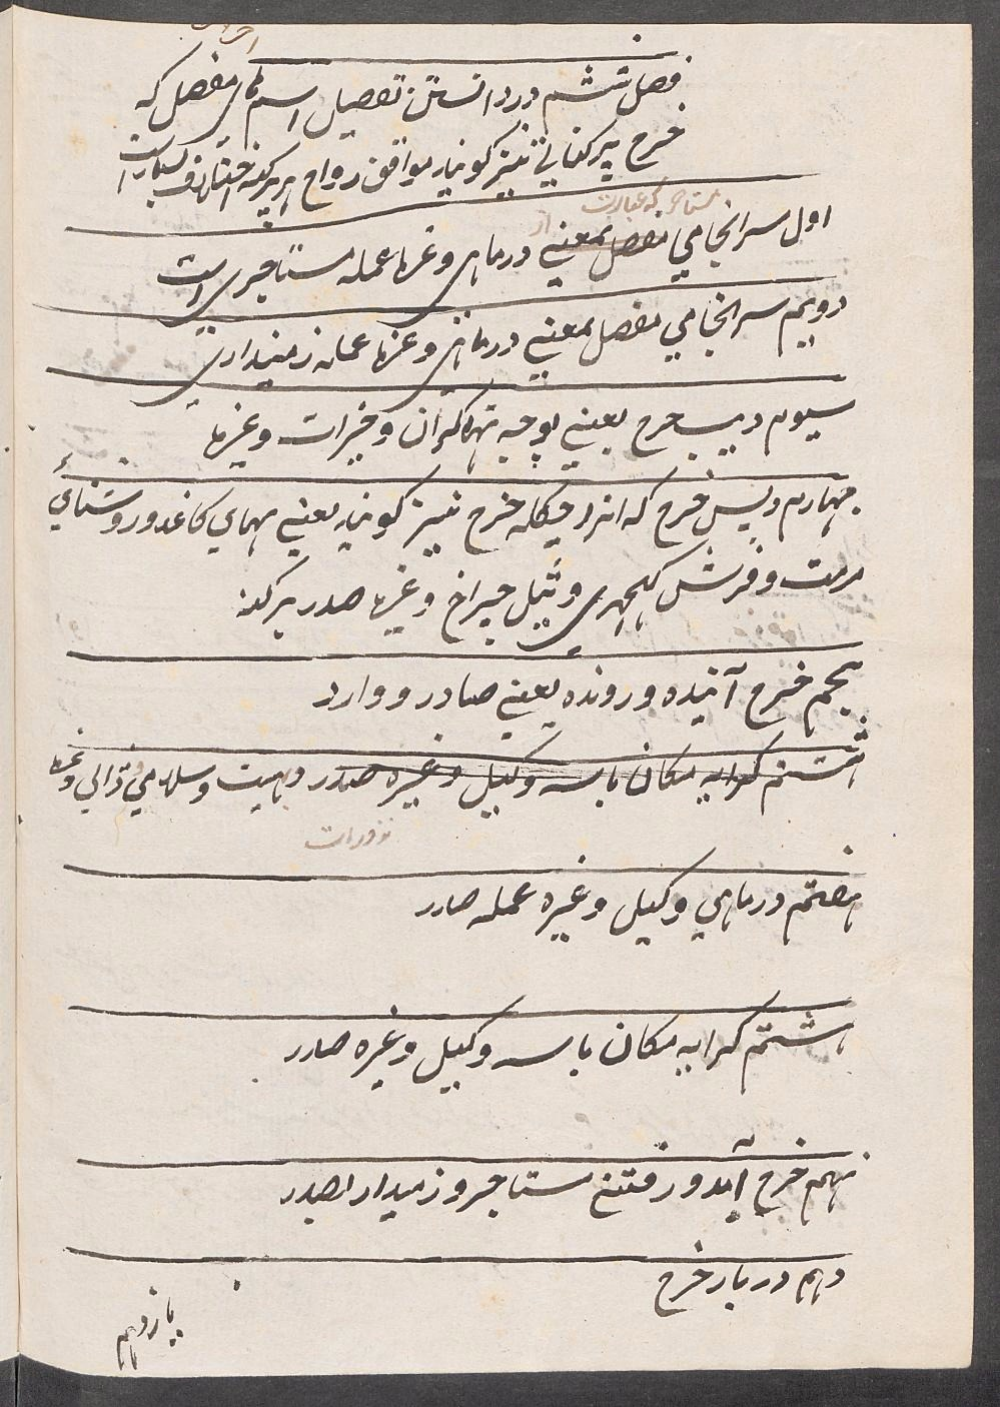 فصل ششم در دانستن تفصیل اسم های مفصل که
خرج پرکناتی نیز کویند موافق رواج هر پرکنه اختلاف بسیار است
مستاجر که عبارت از
اول سرانجامی مفصل بمعنی درماهی و غیرها عمله مستاجری است
دویم سرانجامی مفصل بمعنی درماهی و غیرها عمله زمینداری
سیوم دیب خرج یعنی بوجه تهاکران و خیرات و غیرها
چهارم دیس خرج که انرا چکله خرج نیز کویند یعنی بهای کاغذ و روشنائی
مرمت و فرش کچهری و تیل چراغ و غیرها صدر پرکنه
پنجم خرج آینده و رونده یعنی صادر و وارد
ششم کرایه مکان باسه وکیل و غیره صدر دهیت و سلامی و دالی و غیرها
نذورات
هفتم درماهی وکیل و غیره عمله صدر
هشتم کرایه مکان باسه وکیل و غیره صدر
نهم خرج آمد و رفتنی مستاجر و زمیدار بصدر
دهم دربار خرج
یازدهم